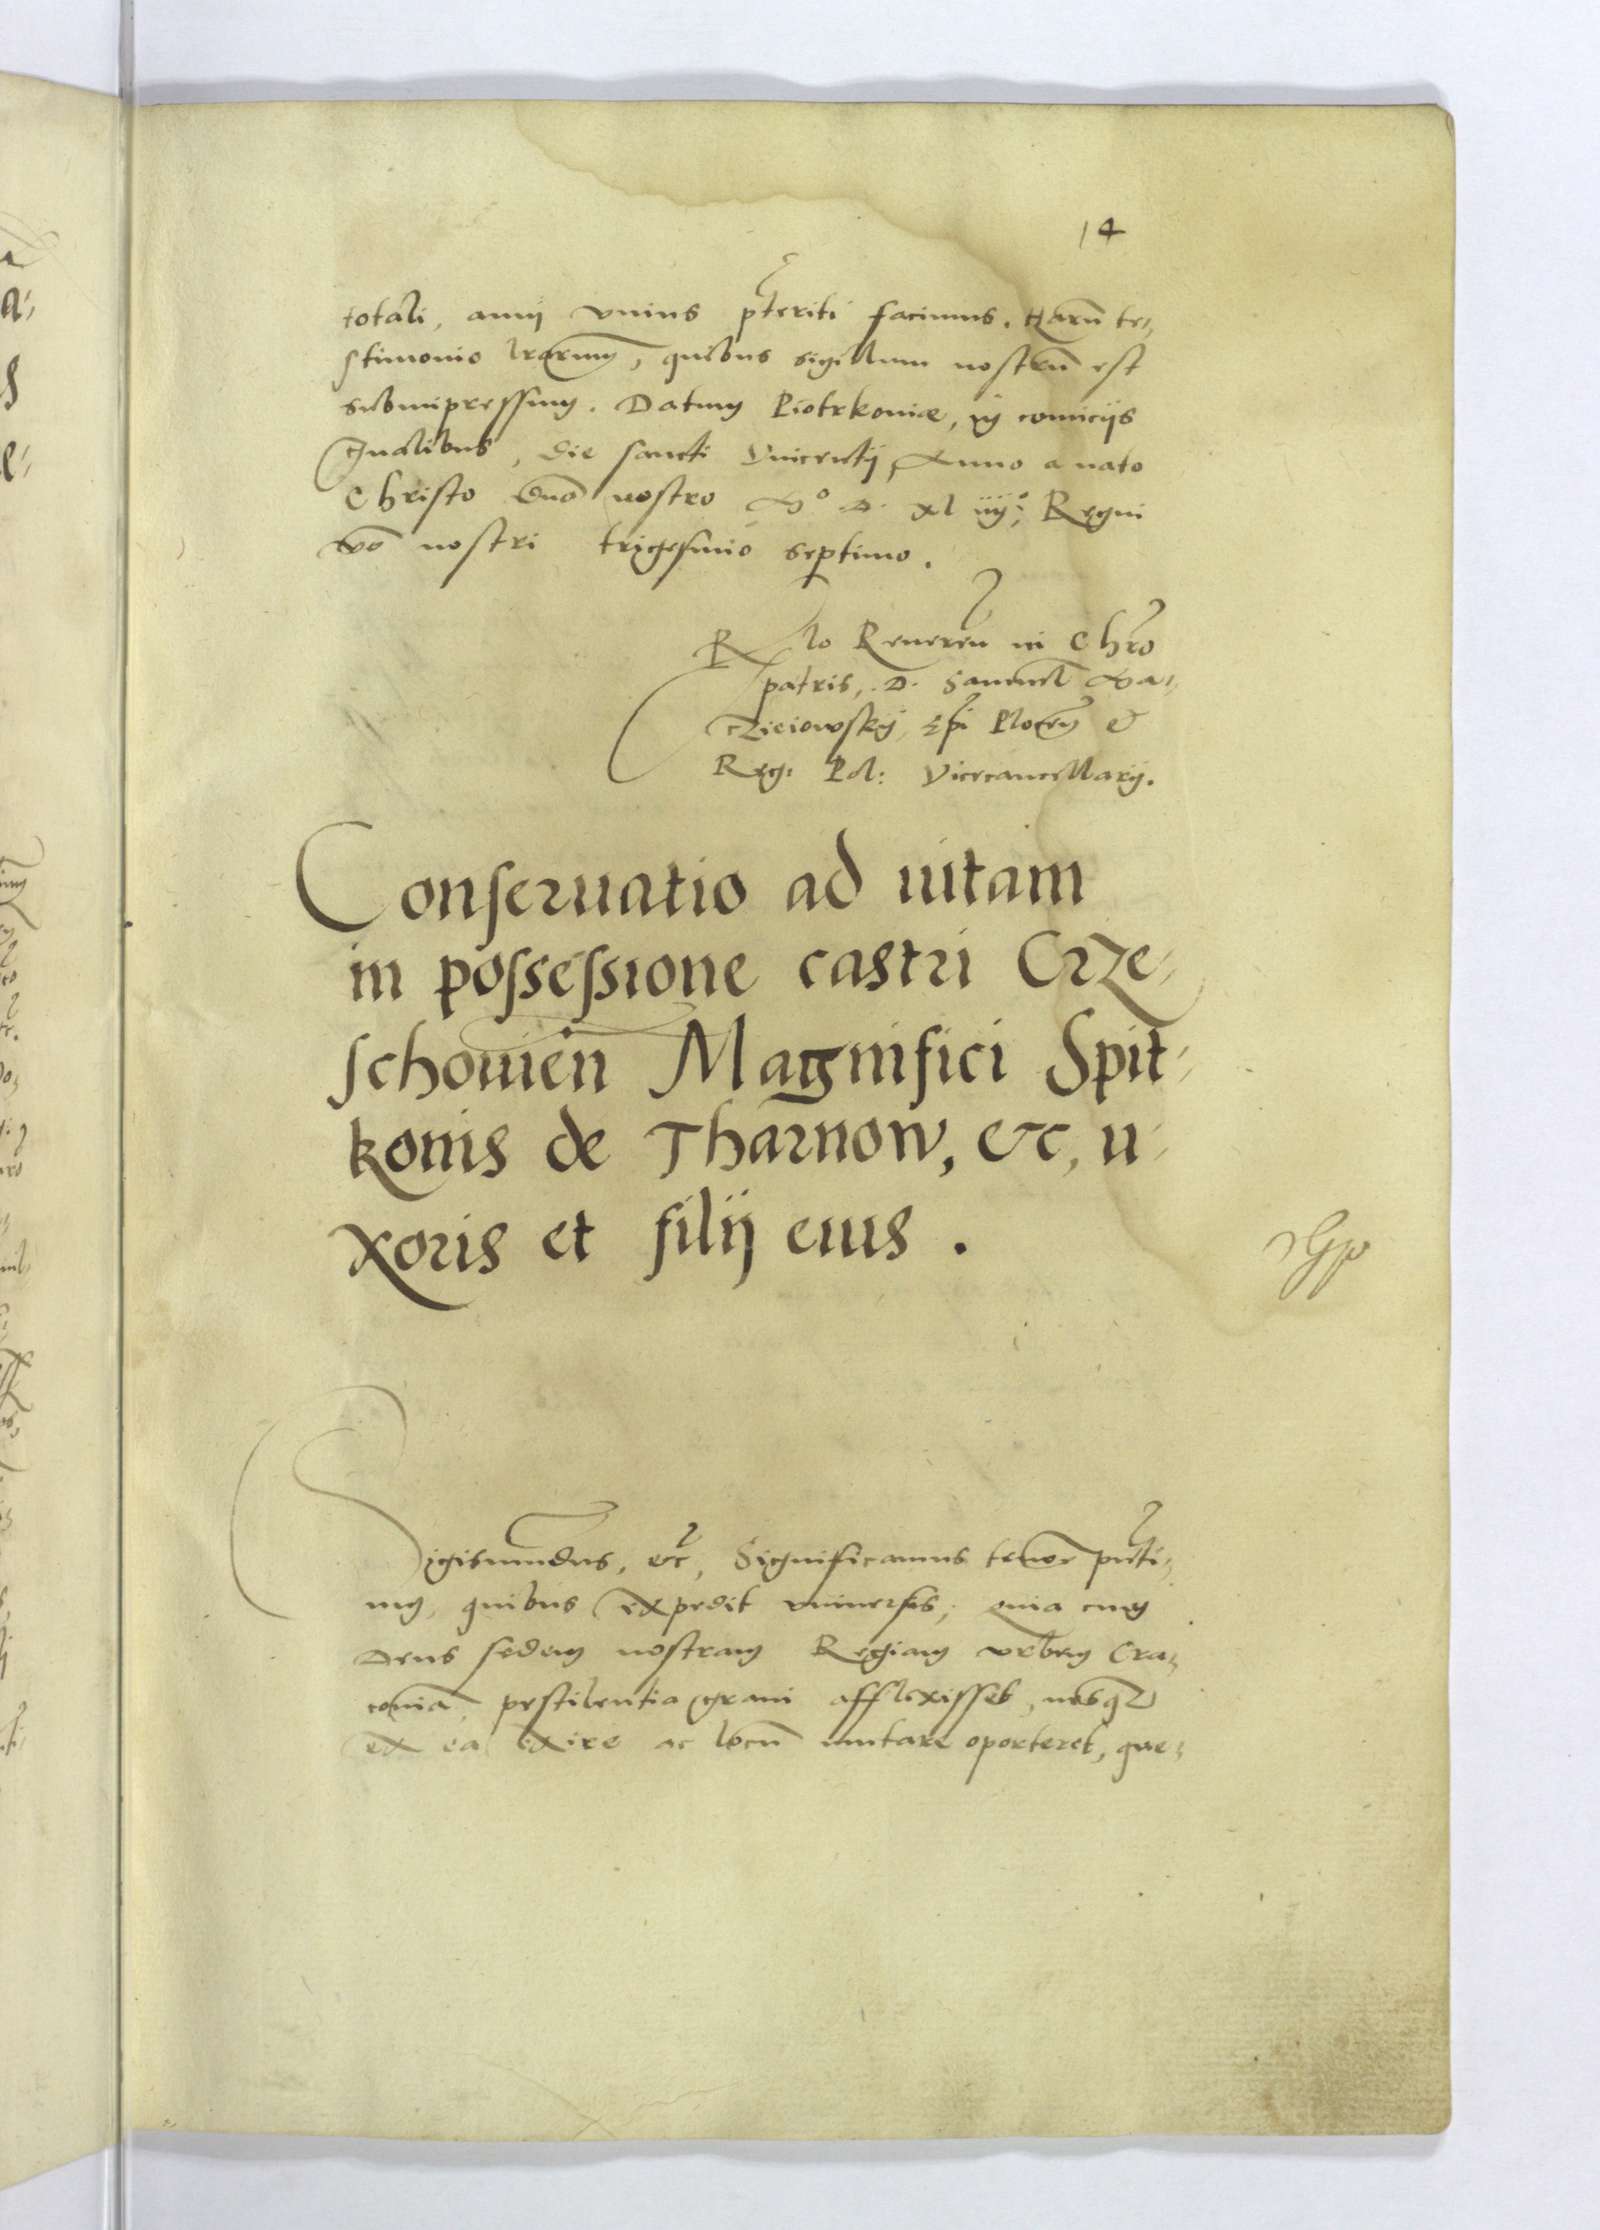 14
totali, anni vnius pteriti facimus. Harū te-
stimonio lrarum, quibus sigillum nostrū est
subimpressum. Datum Piotrkoviæ, in comicijs
gnalibus, die sancti Vincentij, Anno a nato
Christo Dnō nostro Mº. D. xl iiijº; Regni
vō nostri trigesimo septimo.
Rlo Reueren in Chrō
patris, D. Samuel Ma-
czieiowskij, Epi Plocen &
Reg: Pol: Vicecancellarij.
Conseruatio ad uitam
in possessione castri Crze-
schouien Magnifici Spit-
konis de Tharnow, etc, u-
xoris et filij eius.
Sigismundus, etc, Significamus tenore pnti-
um, quibus expedit vniuersis, quia cum
Deus sedem nostram Regiam vrbem Cra-
couiā pestilentia graui afflixisset, nosq
ex ea exire ac locū mutare oporteret, que-